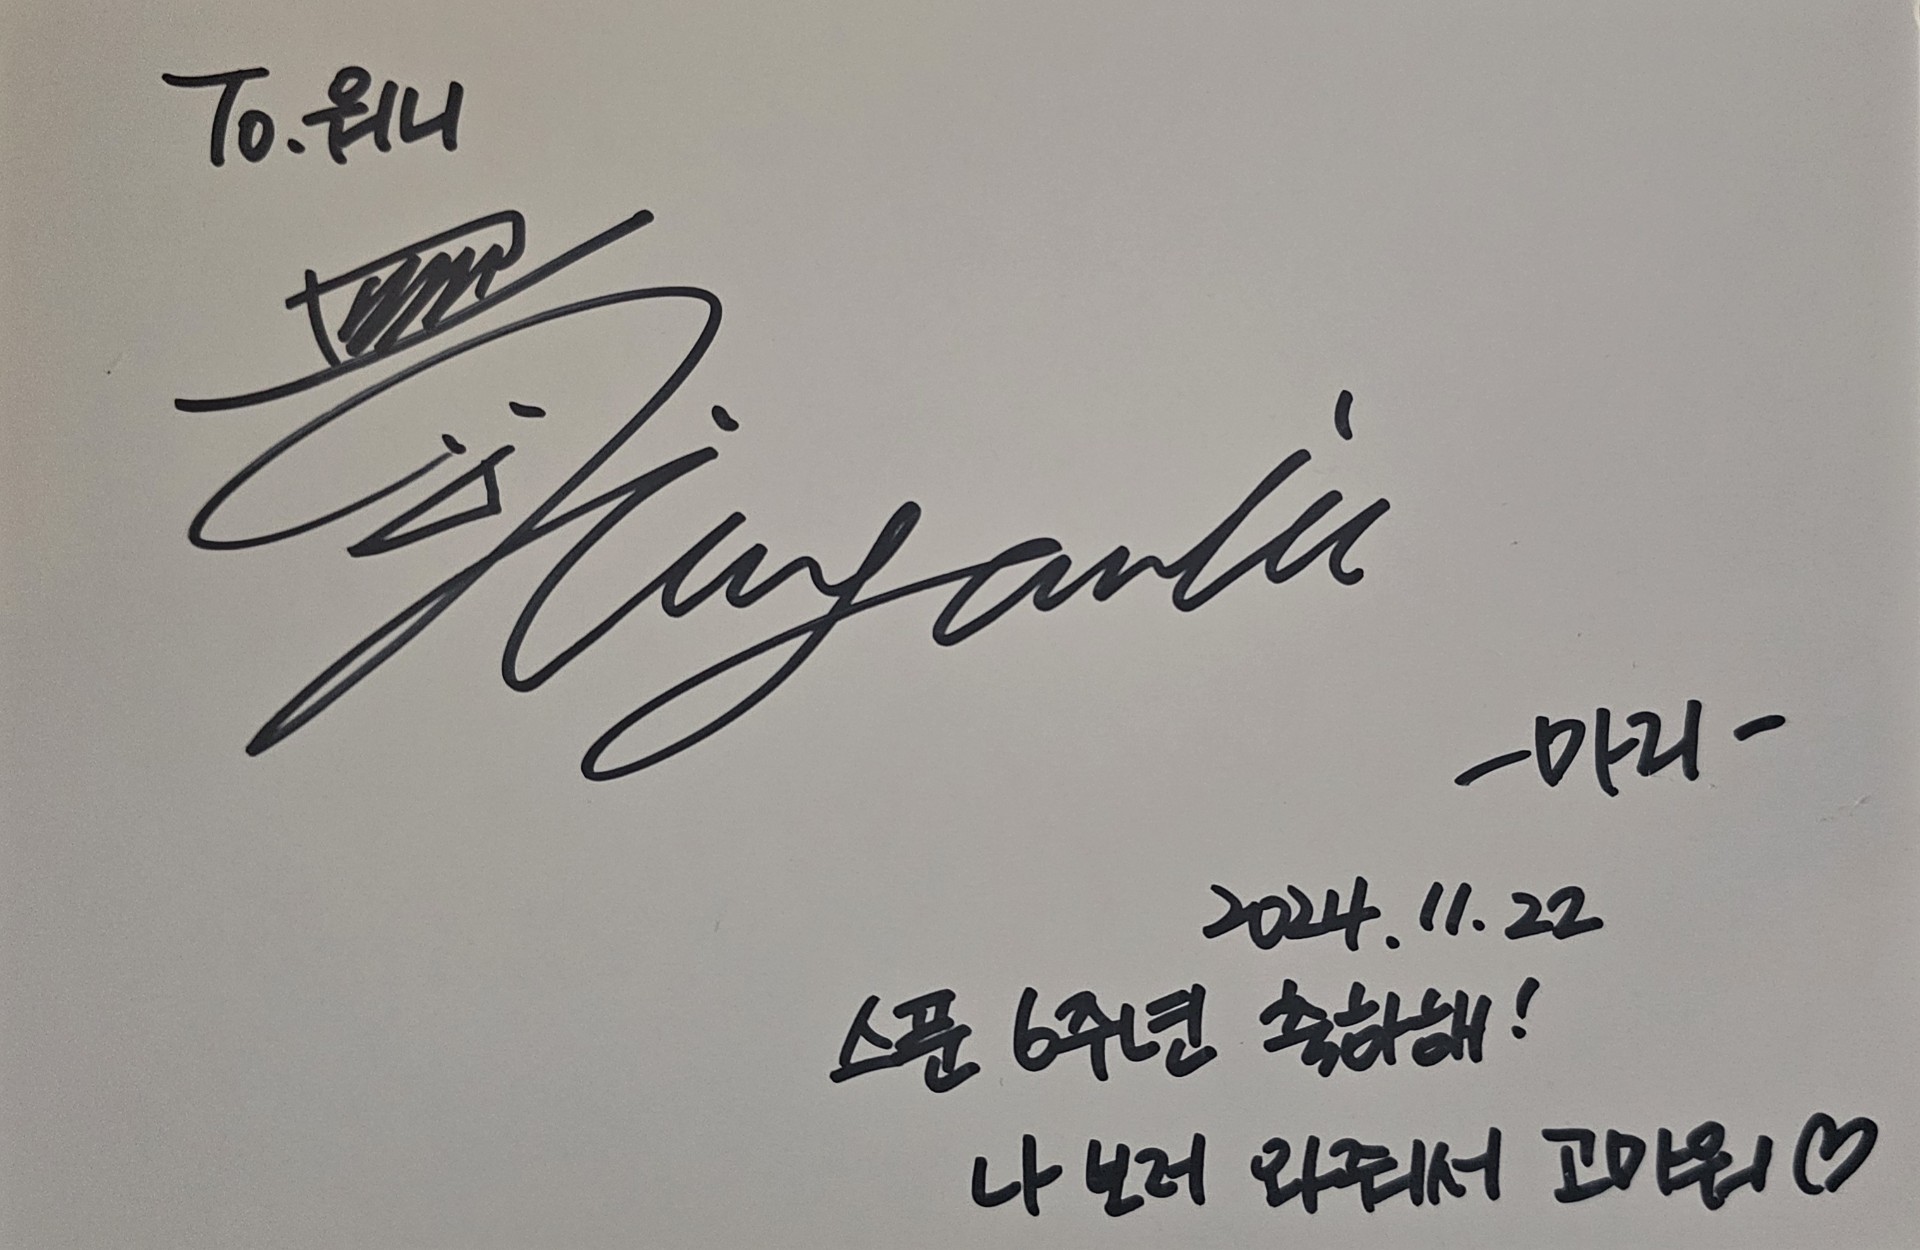 To. 워니
-마리-
2024. 11. 22
스푼 6주년 축하해!
나 보러 와줘서 고마워♡